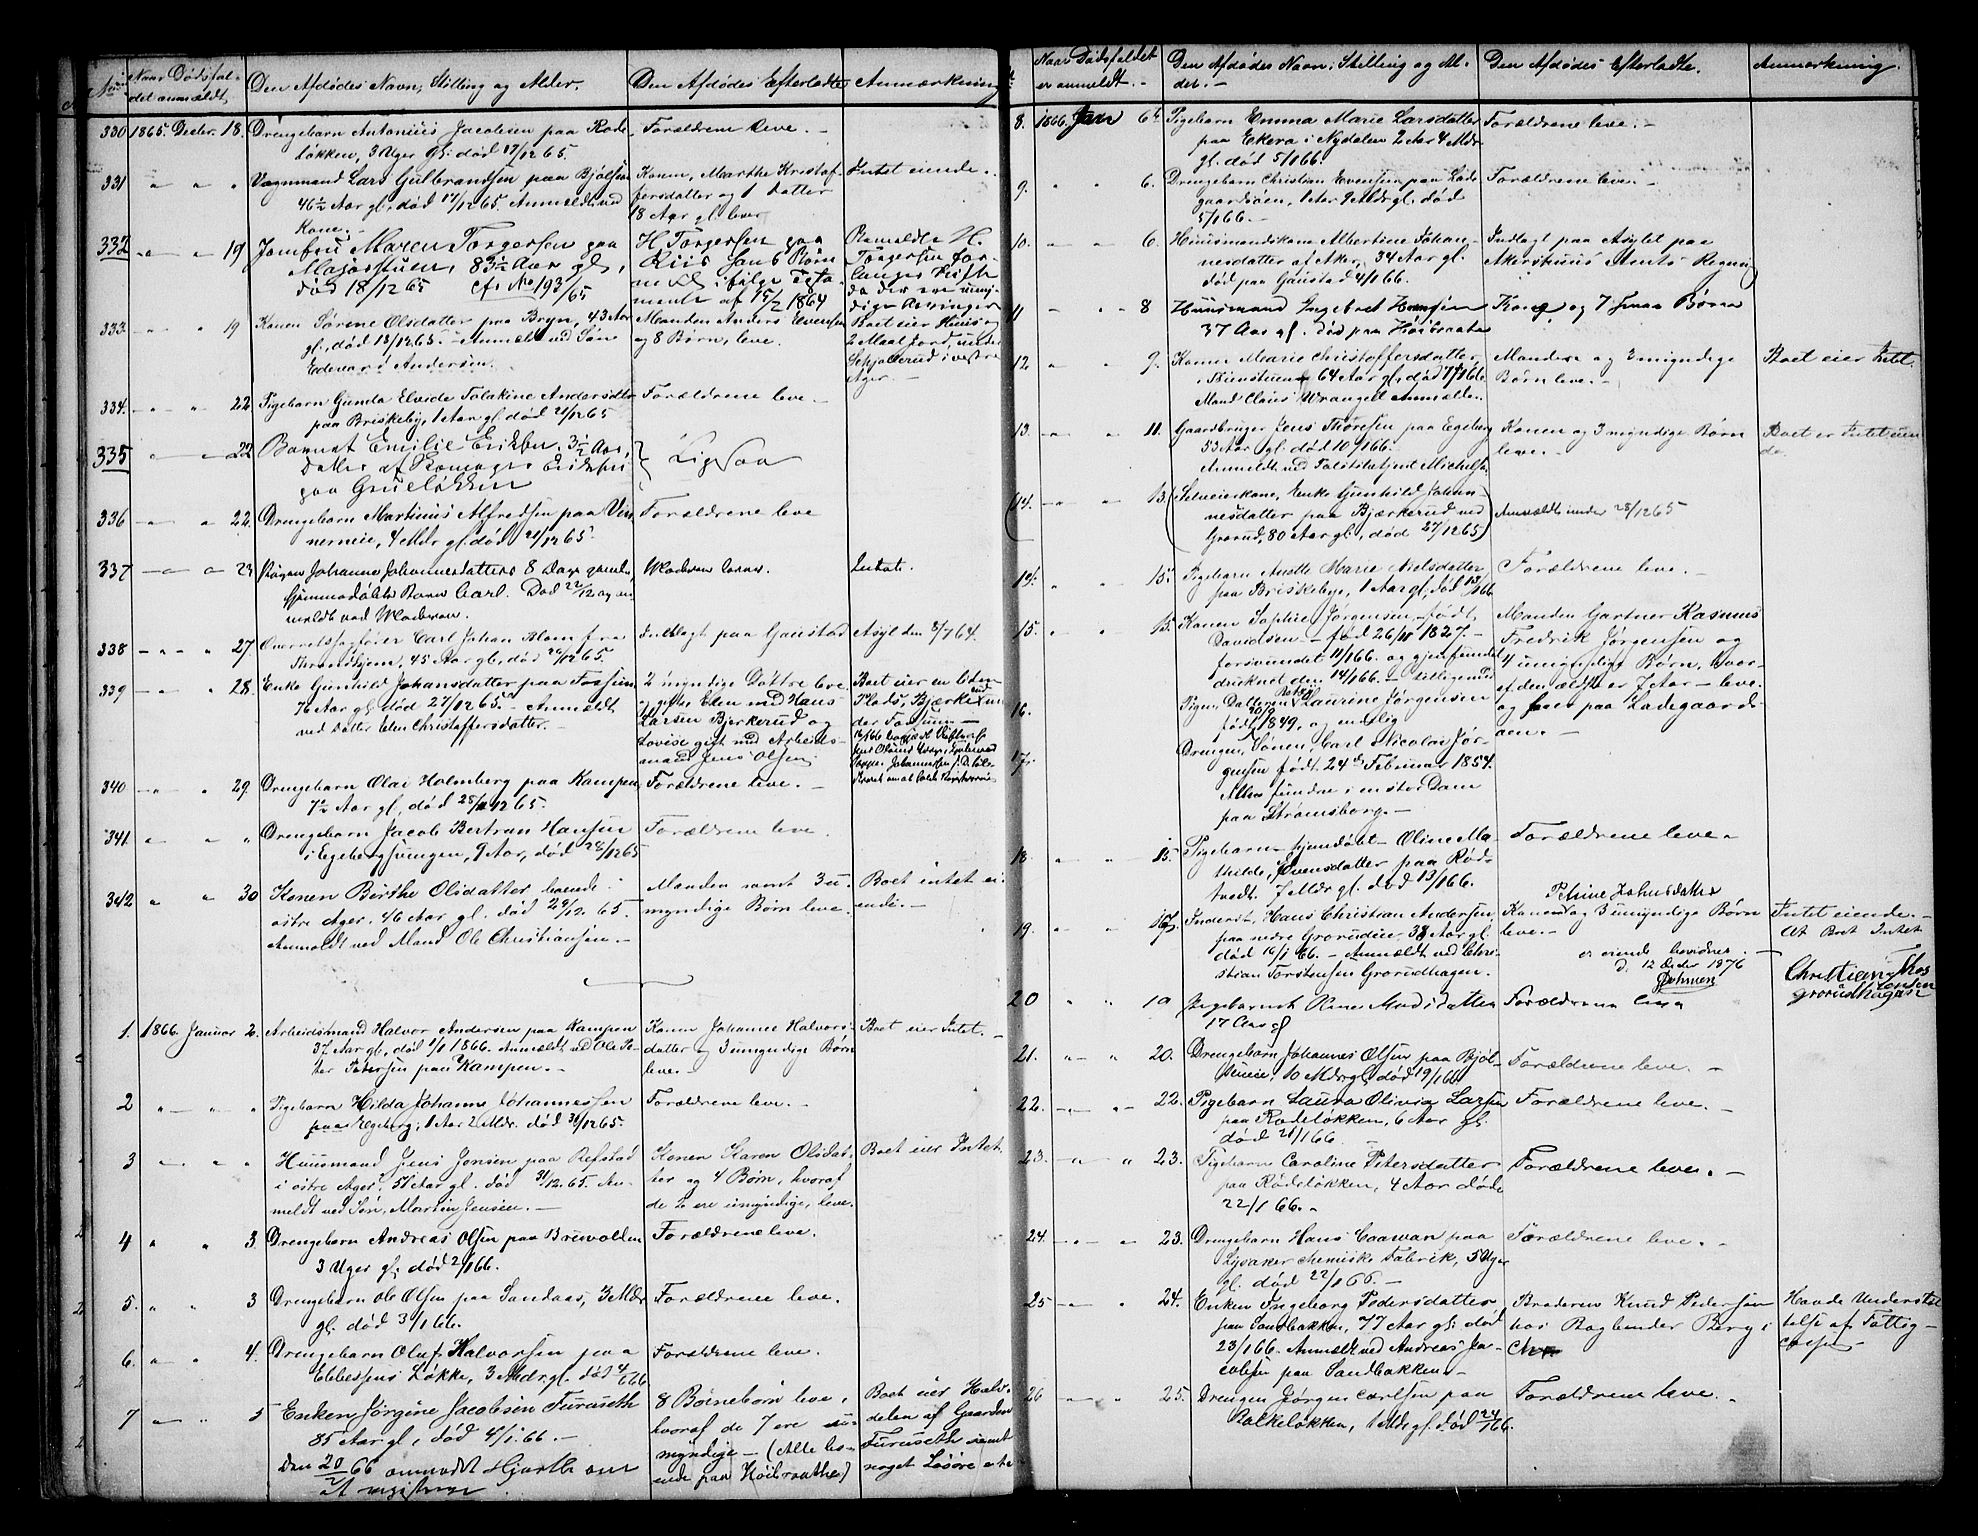 No Naar Dødsfal- Den Afdødes Navn, Stilling og Alder. Den Afdødes Efterladte Anmærkning
det anmeldt.
330 1865. Decbr. 18. Drengebarn Antonius Jacobsen paa Rode- Forældrene leve. -
løkken, 3 Uger gl. død 17/12 65.
331 " " " Vognmand Lars Gulbrandsen paa Bjølsen Konen, Marthe Kristof- Intet eiende.
46½ Aar gl., død 17/12 65. Anmeldt ved fersdatter og 1 datter
Kone. - 18 Aar gl. lever
332 " " 19 Jomfru Maren Torgersen paa H. Torgersen paa
Majorstuen, 83½ Aar gl,
død 18/12 65 cfr No 193/65 mente af 15/2 1864
333 " " " 19 Konen Sørine Olsdatter paa Bryn, 43 Aar Manden Anders Evensen Boet eier Huus og
gl., død 13/12 65. - Anmeldt ved Søn og 8 Børn, leve. 2 Maal Jord, under
Edevart Andersen. i vestre
Ager. -
334. " " " 22. Pigebarn Gunda Elvide Andersdtr Forældrene leve -
paa Briskeby, 1 Aar gl. død 21/12 65
335 " " 22 Barnet Emilie Eriksen 3½ Aar,
datter af Eriksen
paa Grueløkken
336 " " 22. Drengebarn Martinius Alfredsen paa Vin- Forældrene leve
nerneie, 4 Mdr gl. død 21/12 65.
337 " " 23 Pigen Johanne Johannesdatters 8 Dage gamle, Moderen lever. Intet.
hjemmedøbte Barn Carl. Død 22/12 og an-
meldt ved Moderen.
338 " " " 27. Overretssagfører Carl Johan Blom fra Indlagt paa Gaustad Asyl den 8/7 64.
Throndhjem, 45 Aar gl., død 26/12 65.
339 " " 28. Enke Gunhild Johansdatter paa Fossum 2 myndige Døttre leve Boet eier en liden
76 Aar gl. død 27/12 65. - Anmeldt gifte, Elen med Hans Plads, Bjerke
ved datter Elen Christoffersdatter. Larsen Bjerkerud og der Fossum -
Lovise gift med Arbeids-
mand Jens Olsen
340 " " " 29. Drengebarn Olai Holmberg paa Kampen, Forældrene leve. -
7½ Aar gl., død 28/12 65.
341. " " " Drengebarn Jacob Bertran Hansen Forældrene leve.
i Egeberg 9 Aar, død 28/12 65
342 " " 30 Konen Berthe Olsdatter boende i Manden samt 3 u- Boet intet ei-
østre Ager. 46 Aar gl. død 29/12 65. myndige Børn leve. ende. -
Anmeldt ved Mand Ole Christiansen. -
1. 1866. Januar 2. Arbeidsmand Halvor Andersen paa Kampen Konen Johanne Halvors- Boet eier Intet. -
37 Aar gl., død 1/1 1866. Anmeldt ved Ole Pe- datter og 3 umyndige Børn
ter Pedersen paa Kampen. - leve. -
2 " " " Pigebarn Hilda Johanne Johannessen Forældrene leve. -
paa Egeberg, 1 Aar 2 Mdr. død 31/12 65.
3 " " " Huusmand Jens Jensen paa Refstad Konen Karen Olsdat- Boet eier Intet.
i østre Ager, 51 Aar gl. død 31/12 65. An- ter og 4 Børn, hvoraf
meldt ved Søn, Martin Jensen. - de 2 ere umyndige, leve.
4 " " 3. Drengebarn Andreas Olsen paa Breivolden Forældrene leve.
3 Uger gl. død 2/1 66.
5. " " 3 Drengebarn Ole Olsen paa Sandaas, 3 Mdr Forældrene leve.
gl. død 3/1 66.
6. " " 4. Drengebarn Oluf Halvorsen paa Forældrene leve.
Ebbessens Løkke, 3 Mdr gl. død 4/1 66
7 " " 5 Enken Jørgine Jacobsen Furuseth 8 Børnebørn leve, Boet eier Halv-
85 Aar gl, død 4/1 66. - hvoraf de 7 ere u- delen af Gaarden
Den 20/2 66 om myndige - (Alle bo- Furuseth samt
at registrere ende paa Høibraathen) noget Løsøre
Naar Dødsfaldet Den Afdødes Navn, Stilling og Al- Den Afdødes Efterladte. Anmærkning.
er anmeldt. - der. -
8. 1866. Jan 6te Pigebarn Emma Marie Larsdatter Forældrene leve. -
paa Ekera i Nydalen 2 Aar 4 Mdr
gl. død 5/1 66.
9. " " 6. Drengebarn Christian Evensen paa Lade- Forældrene leve. -
gaardsøen, 1 Aar 9 Mdr gl. død
5/1 66. -
10. " " 6. Huusmandskone Albertine Johan- Indlagt paa Asylet paa
nesdatter af Aker, 34 Aar gl. Akershuus Amts Regning
død paa Gaustad 4/1 66.
11 - " - 8 Huusmand Ingebret Hansen Kone og 7 smaa Børn
37 Aar gl. død paa Høibraaten
12. " " 9. Konen Marie Christoffersdatter Manden og myndige Boet eier Intet
i 64 Aar gl., død 7/1 66. Børn leve. -
Mand Claus Wrangell Anmeldte. -
13. " " 11. Gaardbruger Jens Thoresen paa Egeberg Konen og 3 myndige Børn Boet er Intet eien-
53 Aar gl. død 10/1 66. leve. - de.
Anmeldt ved Politibetjent Michelsen
(14. " " 13. (Selveierkone, Enke Gunhild Johan- Anmeldt under 28/12 65
nesdatter paa Bjærkerud ved
Grorud, 80 Aar gl., død 27/12 65)
14. " " 15. Pigebarn Anette Marie Nielsdatter Forældrene leve. -
paa Briskeby, 1 Aar gl., død 13/1 66
15. " " 15. Konen Sophie Jørgensen født Manden Gartner Rasmus
Davidsen - fød 26/11 1827. - Fredrik Jørgensen og
forsvundet 11/1 66. og gjenfundet 4 umyndige Børn, hvor-
druknet den 14/1 66. - tilligemed af den ældste er 7 Aar - leve.
16. Pigen, Datteren Laurine Jørgensen og paa Ladegaards-
født 1849, og endelig øen. -
17. Drengen, Sønen, Carl Nicolai Jør-
gensen født 24de Februar 1854.
Alle fundne i en stor Dam
paa Strømsborg. -
18. " " 15. Pigebarn - hjemdøbt - Oline Ma- Forældrene leve.
thilde, Evensdatter paa Rød-
tvedt 7 Mdr gl. død 13/1 66. Petrine Johnsdatter
19. " " 17. Inderst, Hans Christian Andersen Konen og 3 umyndige Børn Intet eiende. -
paa nedre Grorudeie 38 Aar gl. leve. - At Boet Intet
død 16/1 66. - Anmeldt ved Chri- er eiende bevidnes
stian Torstensen Grorudhagen. d. 12 1876 Christian Thos
tensen
Grorudhagen
20 " " 19 Pigebarnet Madsdatter Forældrene leve
17 Aar gl
21. " " 20. Drengebarn Johannes Olsen paa Bjøl- Forældrene leve. -
seneie, 10 Mdr gl. død 19/1 66
22. " " 22. Pigebarn Laura Olivia Larsen Forældrene leve. -
paa Rodeløkken, 6 Aar gl.
død 21/1 66.
23. " " 23. Pigebarn Caroline Petersdatter Forældrene leve. -
paa Rodeløkken, 4 Aar døde
22/1 66. -
24. " " 23. Drengebarn Hans Caawan paa Forældrene leve. -
Lysaker chemiske Fabrik, 5 Uger
gl. død 22/1 66. -
25 " " 24. Enken Ingeborg Pedersdatter Broderen Knud Pedersen Havde Understøt-
paa Sandbakken, 77 Aar gl. død hos Bogbinder Berg i telse af Fattig-
23/1 66. Anmeldt ved Andreas Ja- Chra cassen
cobsen paa Sandbakken. -
26 " " 25. Drengen Jørgen Carlsen paa Forældrene leve.
Balkeløkken, 1 Mdr gl. død 24/1 66.